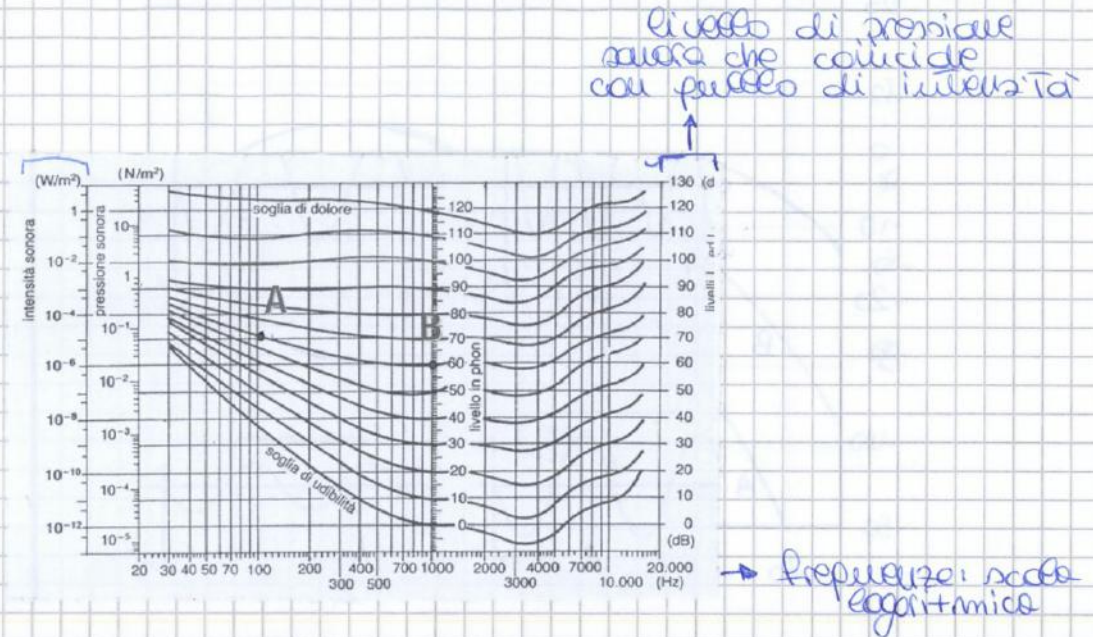 livello di pressione
sonora che coincide
con quello di intensità
(W/m²) (N/m²)
intensità sonora
pressione sonora
1
10⁻²
10⁻⁴
10⁻⁶
10⁻⁸
10⁻¹⁰
10⁻¹²
10
1
10⁻¹
10⁻²
10⁻³
10⁻⁴
10⁻⁵
soglia di dolore
A
B
soglia di udibilità
120
110
100
90
80
70
60
50
40
30
20
10
0
livello in phon
130 (d
120
110
100
90
80
70
60
50
40
30
20
10
0
(dB)
livelli
20 30 40 50 70 100 200 400 700 1000 2000 4000 7000 20.000
300 500 3000 10.000 (Hz)
→ frequenze: scala
logaritmica